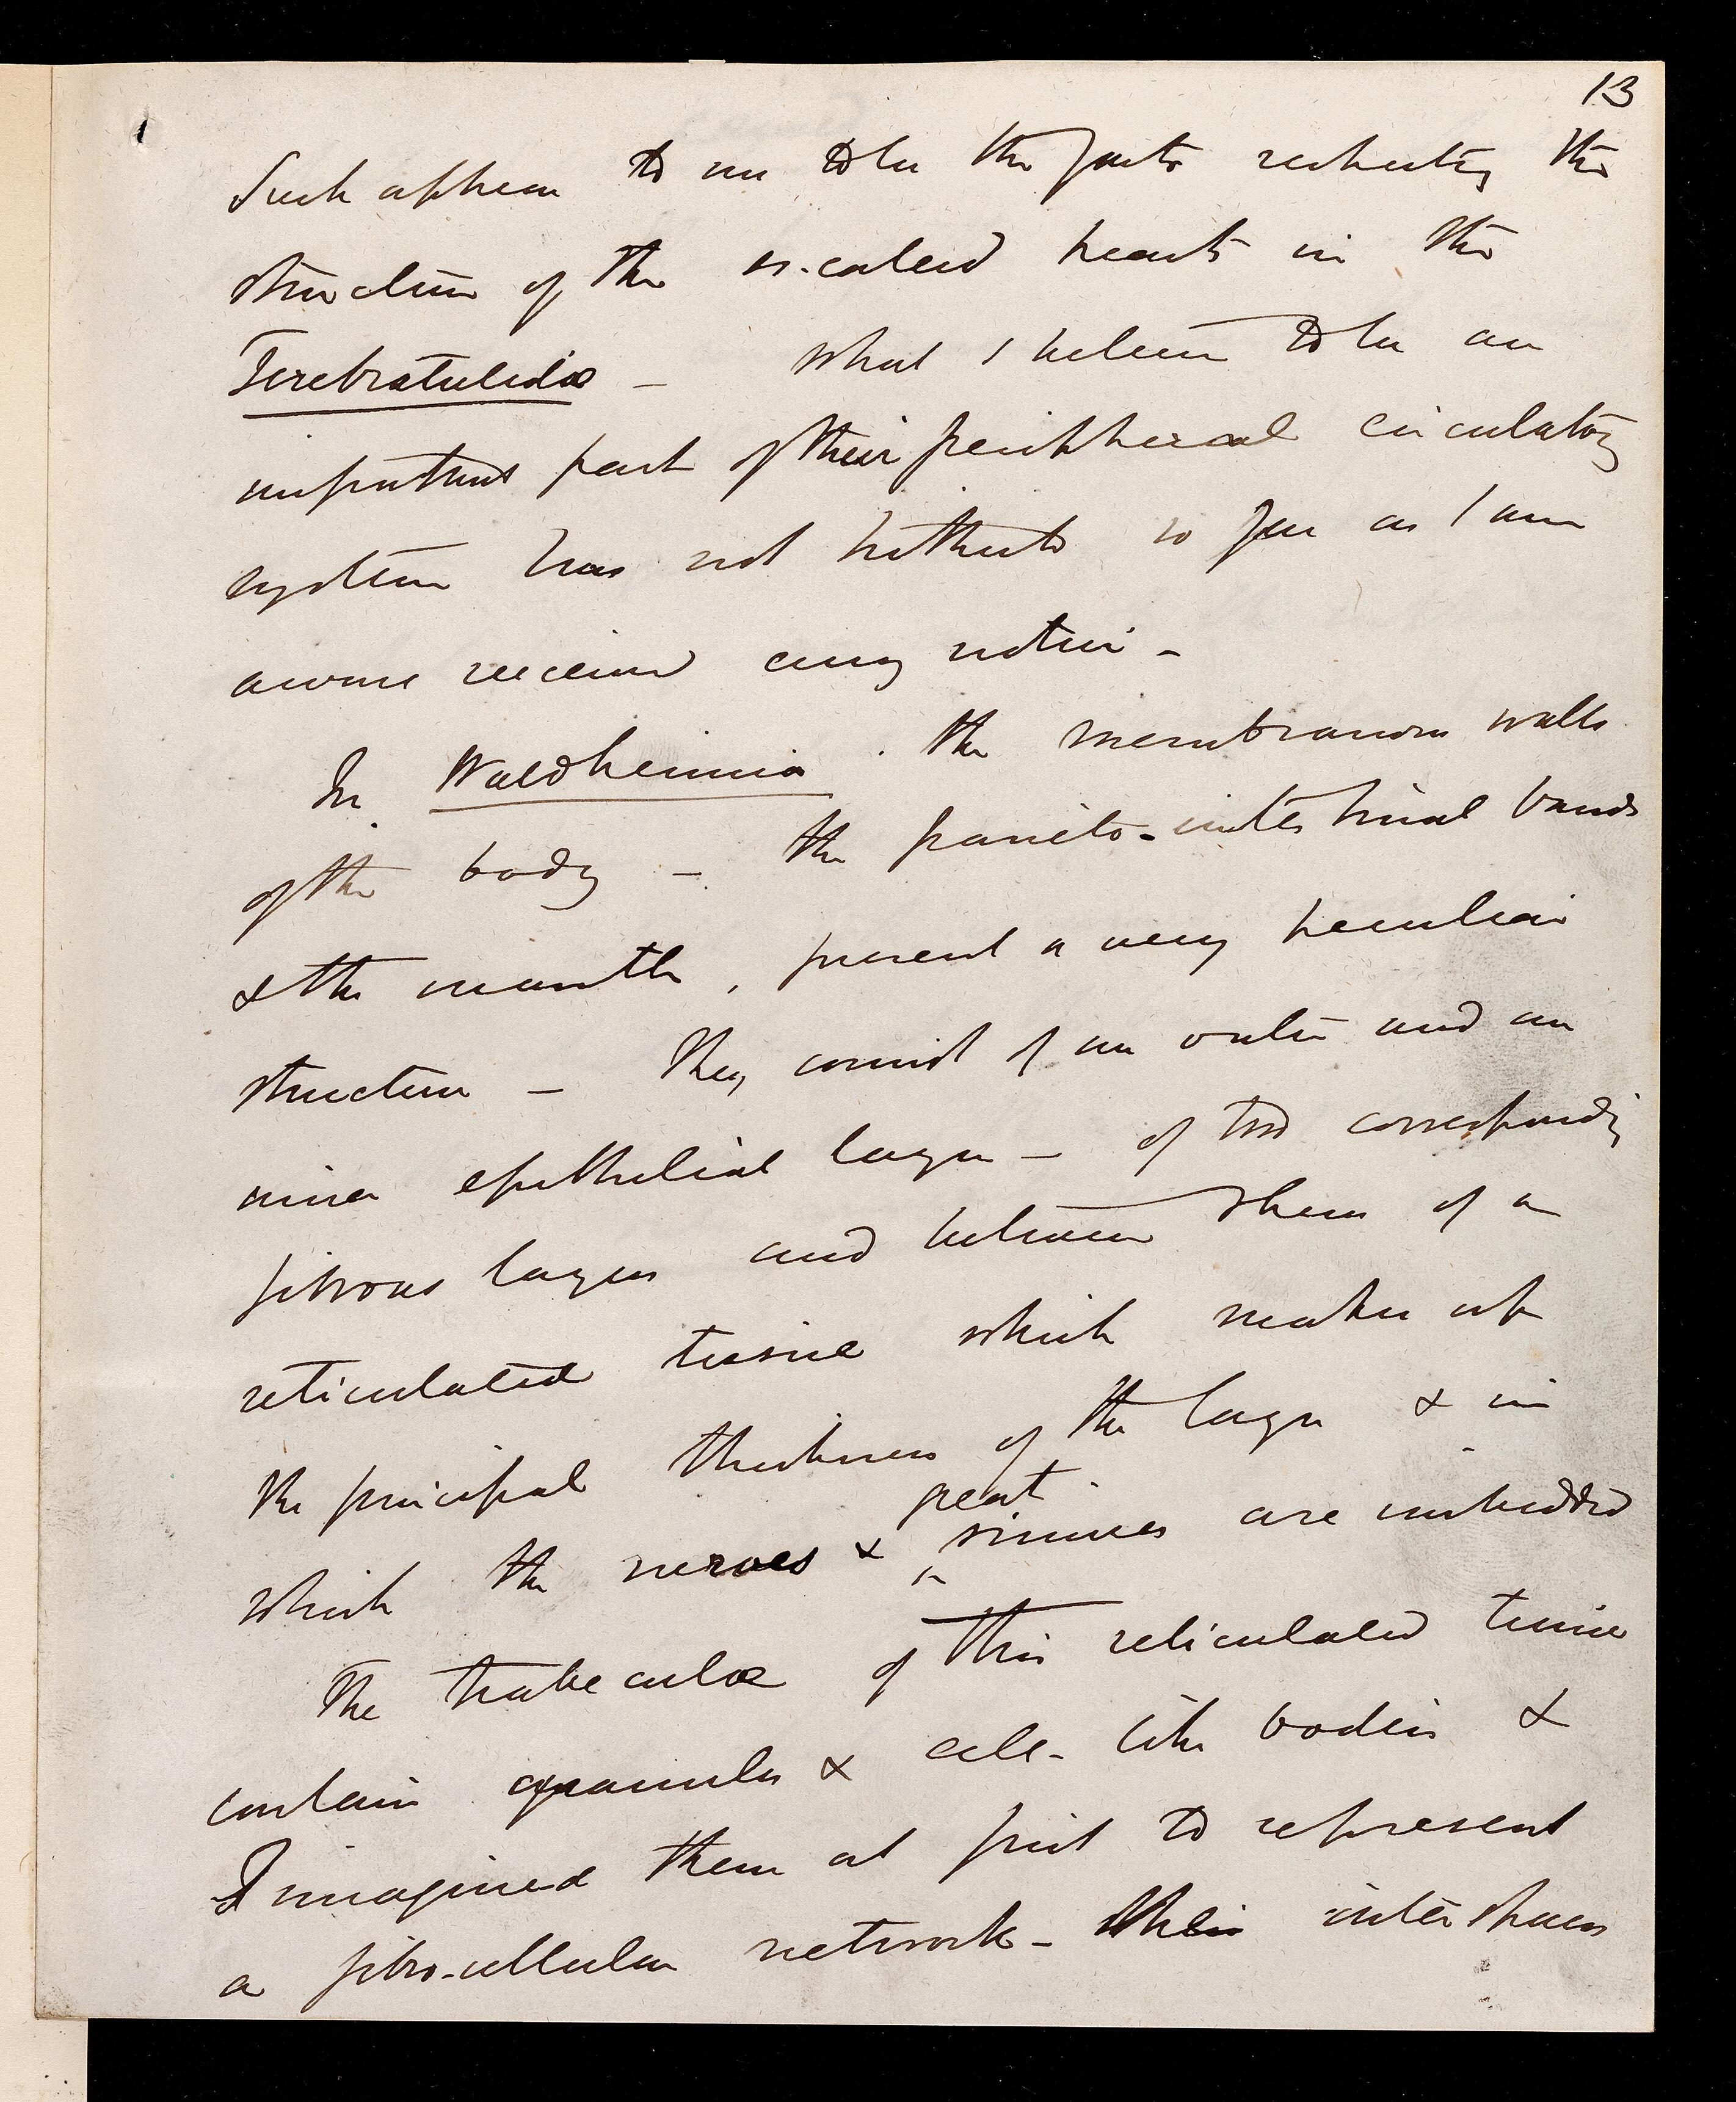 13
Such appear to me to be the facts respecting the
structure of the so-called hearts in the
Terebratulidæ — What I believe to be an
important part of their peripheral circulatory
system has not hitherto so far as I am
aware received any notice –
In Waldheimia the membranous walls
of the body – the parieto-intestinal bands
& the mantle, present a very peculiar
structure – They consist of an outer and an
inner epithelial layer – of two corresponding
fibrous layers and between them of a
reticulated tissue which makes up
the principal thickness of the layer & in
which the nerves & great sinuses are imbedded
The trabeculæ of this reticulated tissue
contain granules & cell-like bodies &
I imagined them at first to represent
a fibro-cellular network – their interspaces